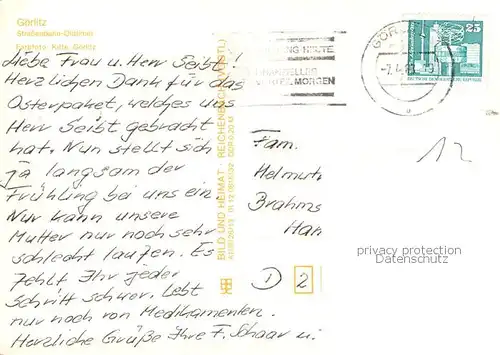 Görlitz
Straßenbahn-Oldtimer
Farbfoto: Kitte, Görlitz
Liebe Frau u. Herr Seibt!
Herzlichen Dank für das
Osterpaket, welches uns
Herr Seibt gebracht
hat. Nun stellt sich
ja langsam der
Frühling bei uns ein.
Nur kann unsere
Mutter nur noch sehr
schlecht laufen. Es
fehlt Ihr jeder
Schritt schwer. Lebt
nur noch von Medikamenten.
Herzliche Grüße Ihre F. Schaar u.
BILD UND HEIMAT · REICHENBACH
HEUTE
MORGEN
GÖRL
25
Fam.
Helmut
Brahms
Han
privacy protection
Datenschutz
D 2
12